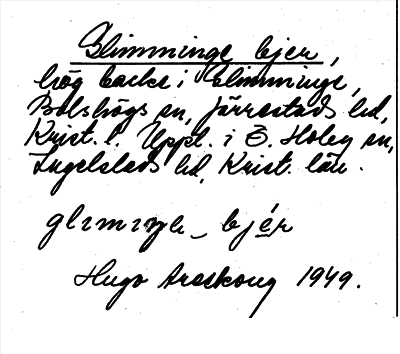 Glimminge bjer,
hög backe i Glimminge,
Bolshögs sn, Järrestads hd,
Krist. l. Uppl. i Ö. Hoby sn,
Ingelstads hd, Krist. län.
glımıŋe bjér
Hugo Areskoug 1949.